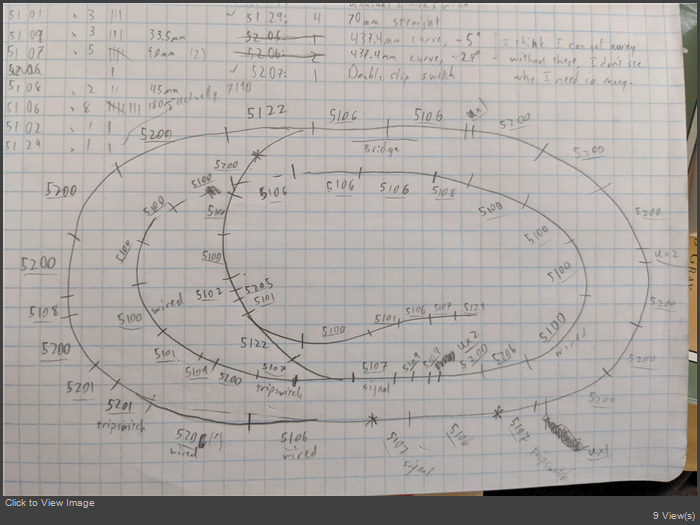 51 01 x 3 |||
✓ 5129: 4 70mm straight
51 09 x 3 ||| 33.5mm
5206: 1 437.4mm curve, ~5° I think I can get away
51 07 x 5 90mm (2)
5206: 2 437.4mm curve, ~24° - without these, I don't see
5206 1
✓ 5207: 1 Double slip switch why I need so many.
51 08 x 2 || 45mm
51 06 x 8 180mm actually
51 02 x 1 |
51 29 x 1 |
5122 5106 5106 5200
5200
Bridge 5200
5200 5100
5106 5106 5106 5108
5200 5100 5100 5100
5200
5100 5100
5200 5100 5100 ux2
5102 5205
5101
5200
5108 wired
5100 5100 5101 5106 5107 5129 5100
5122 ux2
5200 5101 5107 5109 5109 5200 5206 wired
5109 5200 5107
tripswitch signal
5200
5201
5201
tripswitch
5200
5106 5107 5106 5102 ux1
wired wired signal
Click to View Image
9 View(s)